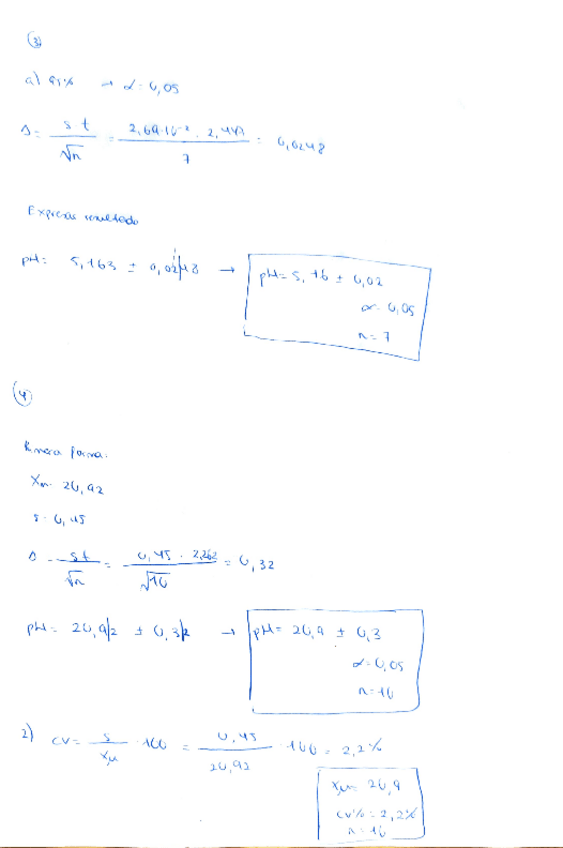 ③
a) 95% → α = 0,05
Δ = s t / √n = 2,69·10⁻² · 2,447 / 7 = 0,0248
Expresar resultado
pH = 5,163 ± 0,02|48 → pH = 5,16 ± 0,02
α = 0,05
n = 7
④
Primera forma:
Xm = 20,92
s = 0,45
Δ = st / √n = 0,45 · 2,262 / √10 = 0,32
pH = 20,9|2 ± 0,3|2 → pH = 20,9 ± 0,3
α = 0,05
n = 10
2) CV = s / Xm · 100 = 0,45 / 20,92 · 100 = 2,2%
Xm = 20,9
CV% = 2,2%
n = 10